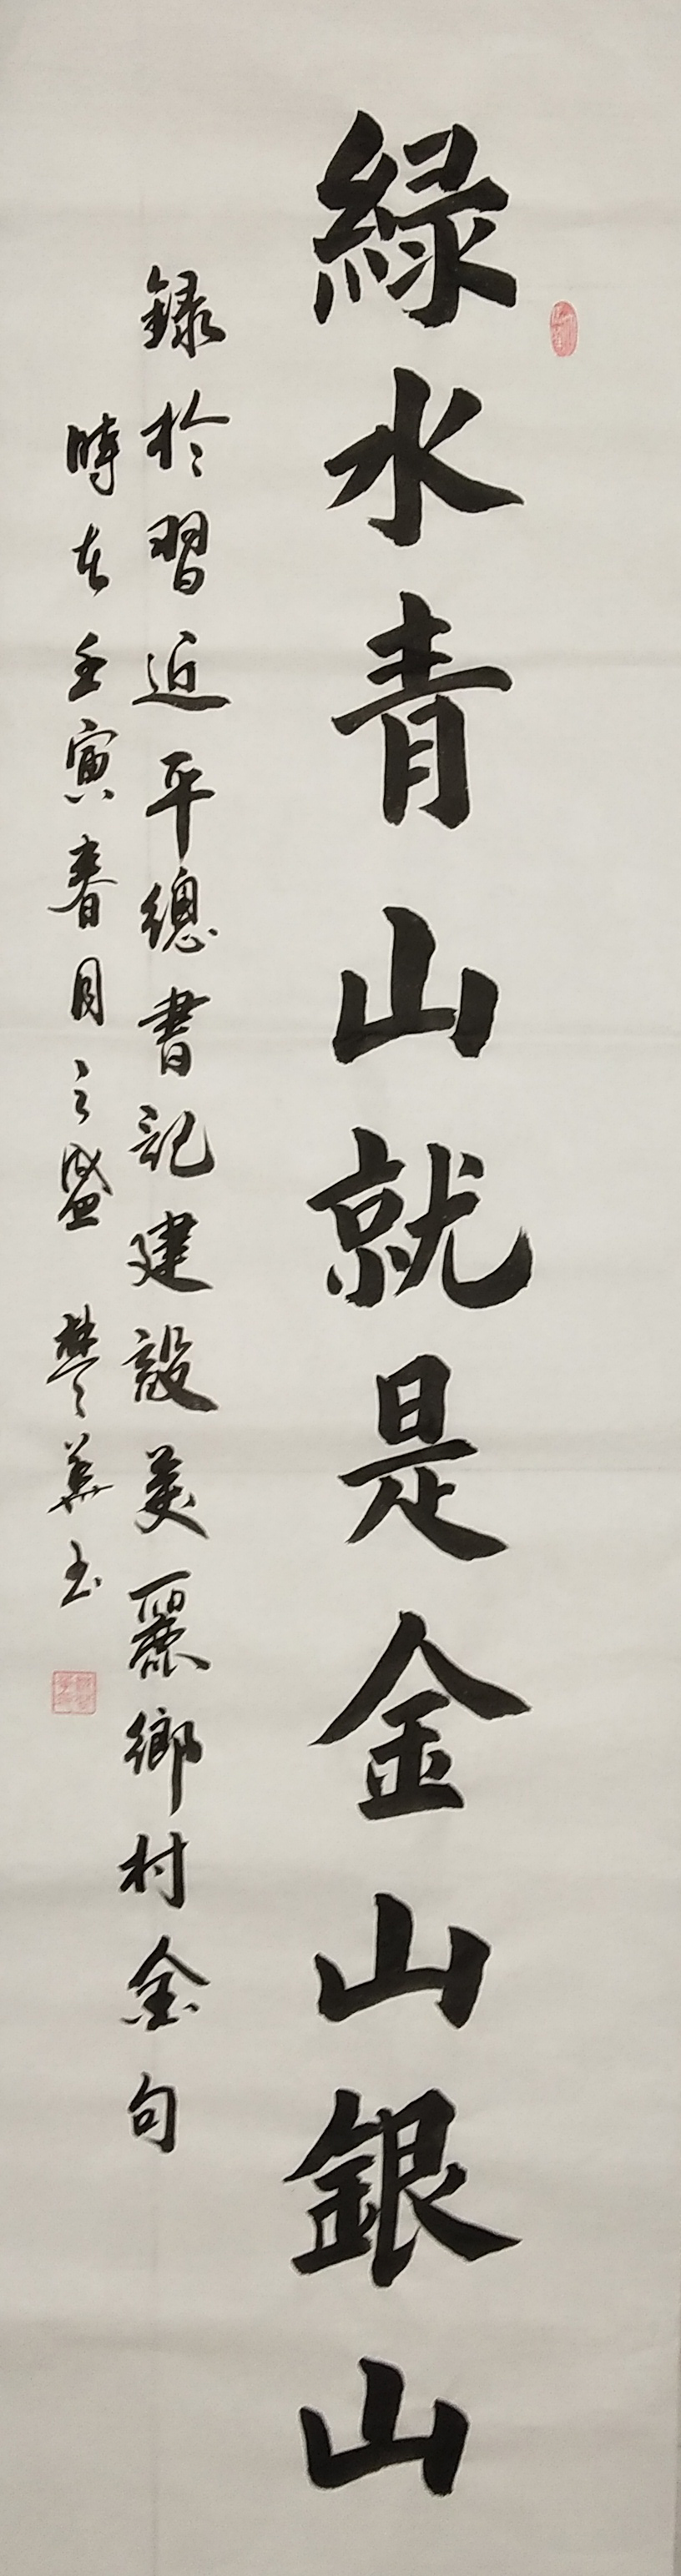 綠水青山就是金山銀山
録於習近平總書記建設美麗鄉村金句
時在壬寅春月之盛 樊華玉